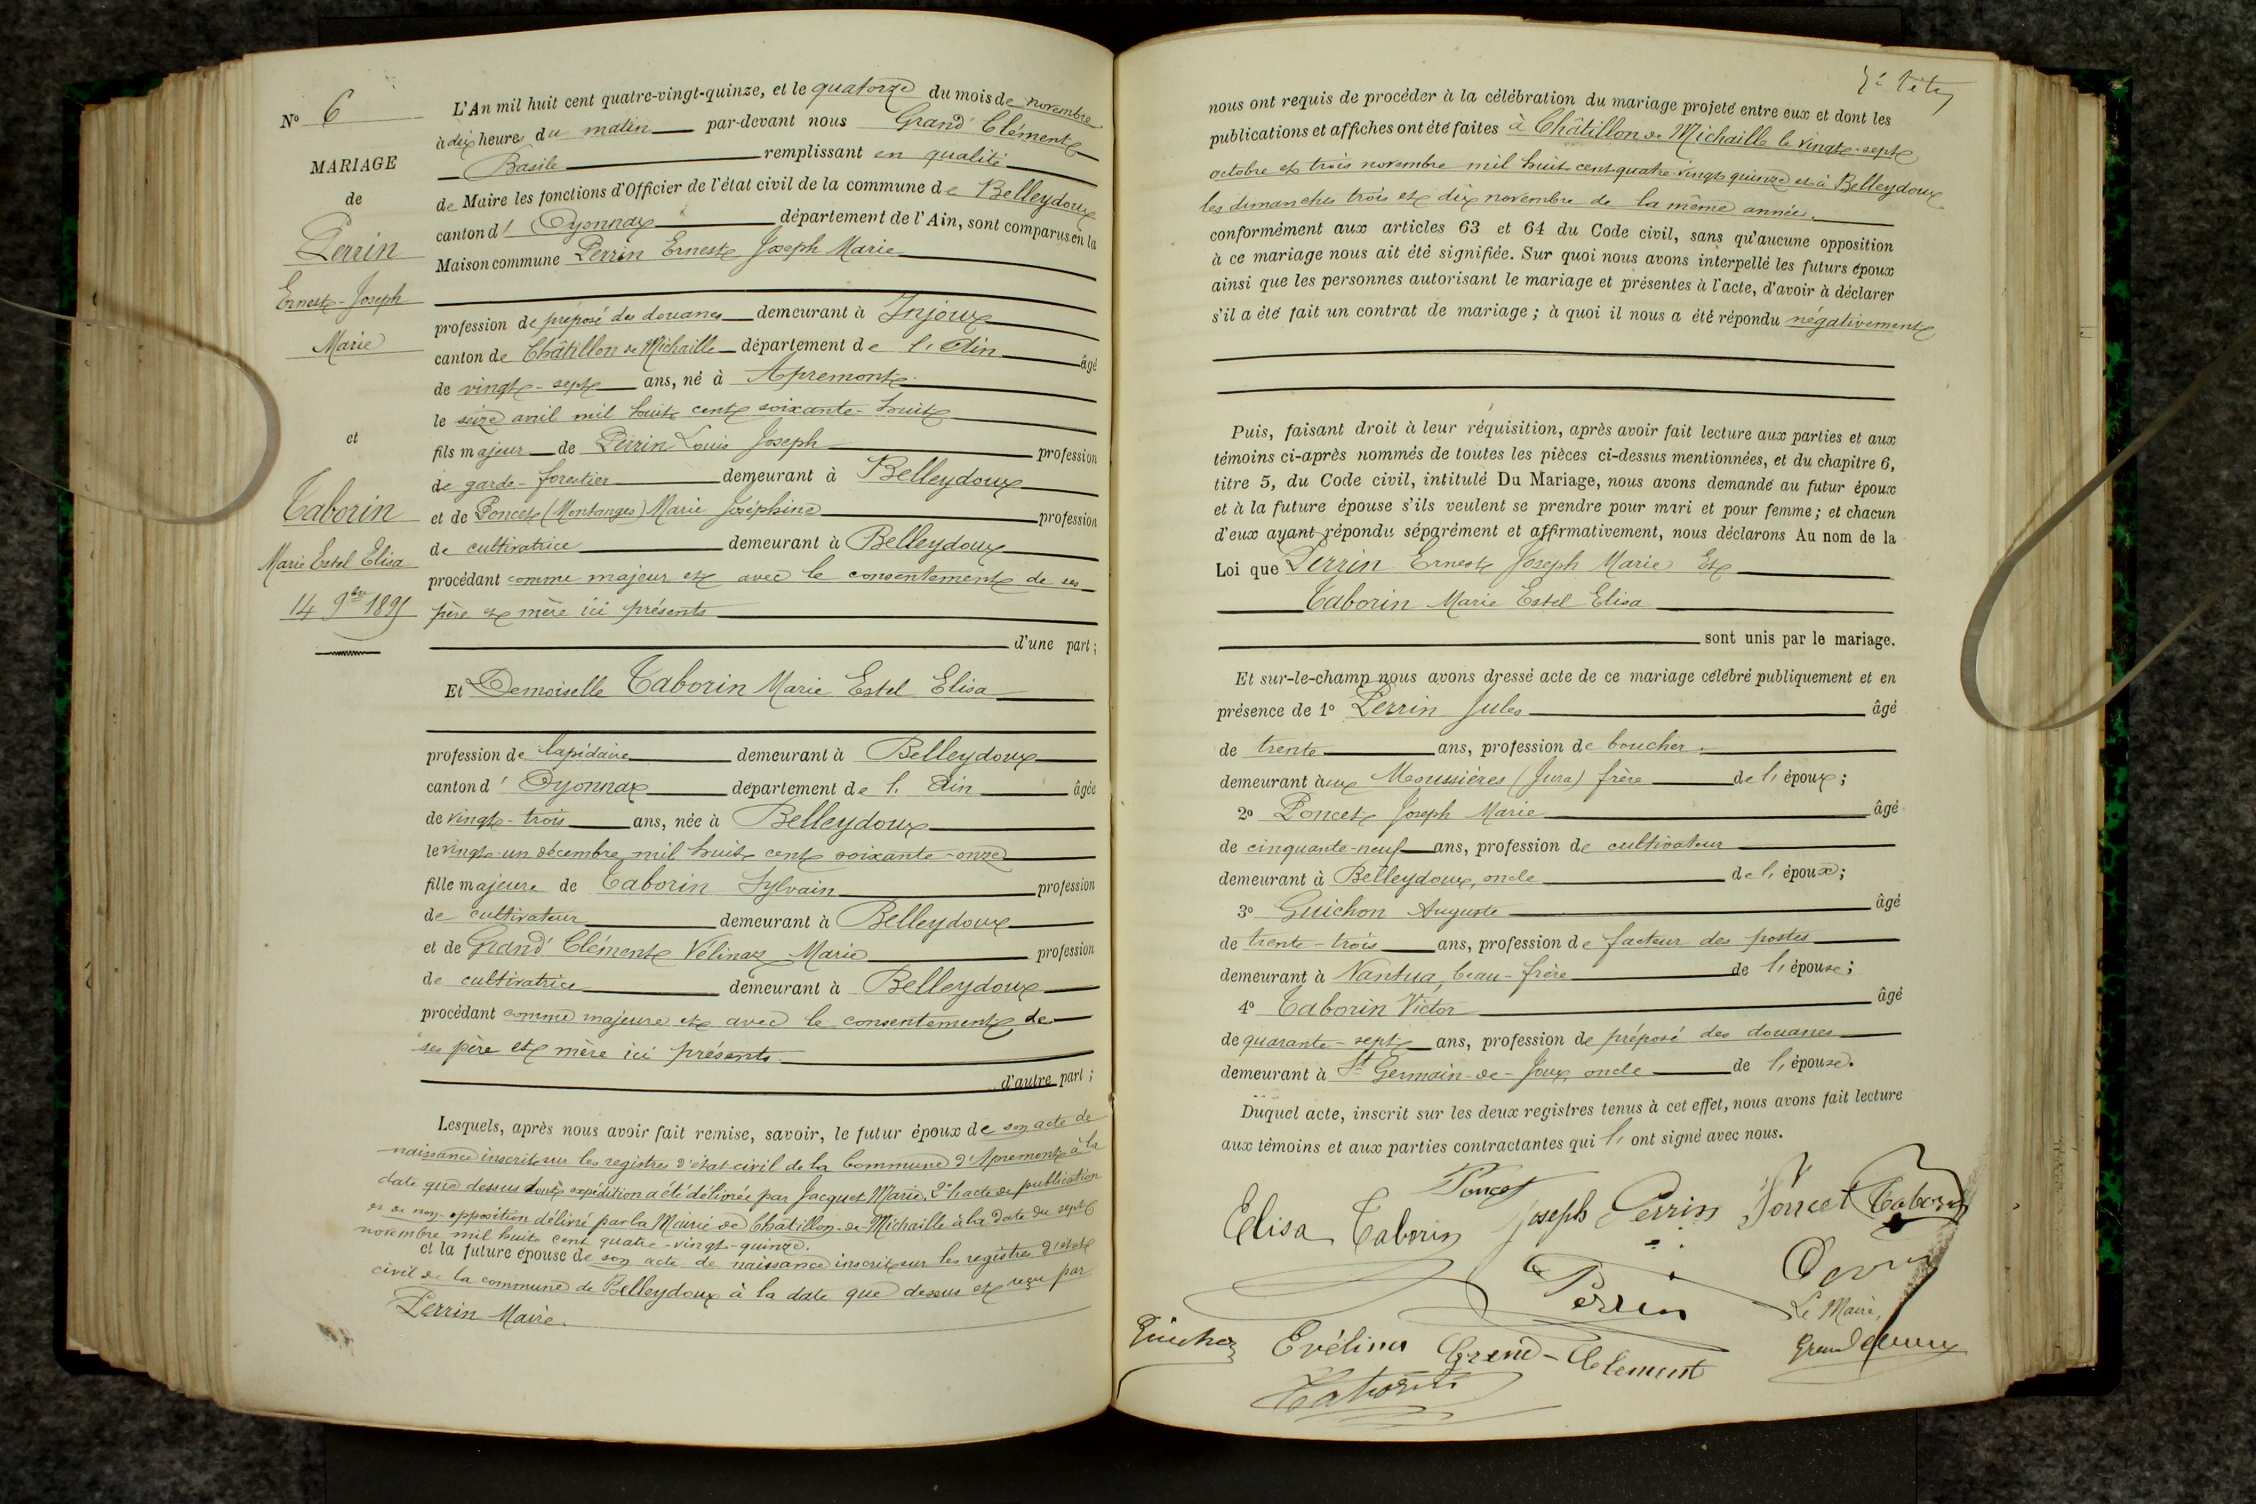 N° 6
MARIAGE
de
Perrin
Ernest-Joseph
Marie
et
Taborin
Marie Estel Elisa
14 9bre 1895
L'An mil huit cent quatre-vingt-quinze, et le quatorze du mois de novembre
à dix heures du matin par-devant nous Grand Clément
Basile remplissant en qualité
de Maire les fonctions d'Officier de l'état civil de la commune de Belleydoux
canton d' Oyonnax département de l'Ain, sont comparus en la
Maison commune Perrin Ernest Joseph Marie
profession de préposé des douanes demeurant à Injoux
canton de Châtillon de Michaille département de l'Ain âgé
de vingt-sept ans, né à Apremont
le seize avril mil huit cent soixante-huit
fils majeur de Perrin Louis Joseph profession
de garde-forestier demeurant à Belleydoux
et de Poncet (Montanges) Marie Joséphine profession
de cultivatrice demeurant à Belleydoux
procédant comme majeur et avec le consentement de ses
père et mère ici présents
d'une part;
Et Demoiselle Taborin Marie Estel Elisa
profession de lapidaire demeurant à Belleydoux
canton d' Oyonnax département de l'Ain âgée
de vingt-trois ans, née à Belleydoux
le vingt-un décembre mil huit cent soixante-onze
fille majeure de Taborin Sylvain profession
de cultivateur demeurant à Belleydoux
et de Grand Clément Vélinaz Marie profession
de cultivatrice demeurant à Belleydoux
procédant comme majeure et avec le consentement de
ses père et mère ici présents
d'autre part;
Lesquels, après nous avoir fait remise, savoir, le futur époux de son acte de
naissance inscrit sur les registres d'état civil de la Commune d'Apremont à la
date que dessus dont expédition a été délivrée par Jacquet Marie, 2° l'acte de publication
et de non-opposition délivré par la Mairie de Châtillon-de-Michaille à la date du sept
novembre mil huit cent quatre-vingt-quinze.
et la future épouse de son acte de naissance inscrit sur les registres d'état
civil de la commune de Belleydoux à la date que dessus et reçu par
Perrin Maire.
nous ont requis de procéder à la célébration du mariage projeté entre eux et dont les
publications et affiches ont été faites à Châtillon de Michaille le vingt-sept
octobre et trois novembre mil huit cent quatre-vingt quinze et à Belleydoux
les dimanches trois et dix novembre de la même année.
conformément aux articles 63 et 64 du Code civil, sans qu'aucune opposition
à ce mariage nous ait été signifiée. Sur quoi nous avons interpellé les futurs époux
ainsi que les personnes autorisant le mariage et présentes à l'acte, d'avoir à déclarer
s'il a été fait un contrat de mariage; à quoi il nous a été répondu négativement
Puis, faisant droit à leur réquisition, après avoir fait lecture aux parties et aux
témoins ci-après nommés de toutes les pièces ci-dessus mentionnées, et du chapitre 6,
titre 5, du Code civil, intitulé Du Mariage, nous avons demandé au futur époux
et à la future épouse s'ils veulent se prendre pour mari et pour femme; et chacun
d'eux ayant répondu séparément et affirmativement, nous déclarons Au nom de la
Loi que Perrin Ernest Joseph Marie Et
Taborin Marie Estel Elisa
sont unis par le mariage.
Et sur-le-champ nous avons dressé acte de ce mariage célébré publiquement et en
présence de 1° Perrin Jules âgé
de trente ans, profession de boucher
demeurant aux Moussières (Jura) frère de l'époux;
2° Poncet Joseph Marie âgé
de cinquante-neuf ans, profession de cultivateur
demeurant à Belleydoux, oncle de l'époux;
3° Guichon Auguste âgé
de trente-trois ans, profession de facteur des postes
demeurant à Nantua, beau-frère de l'épouse;
4° Taborin Victor âgé
de quarante-sept ans, profession de préposé des douanes
demeurant à St Germain-de-Joux, oncle de l'épouse.
Duquel acte, inscrit sur les deux registres tenus à cet effet, nous avons fait lecture
aux témoins et aux parties contractantes qui l'ont signé avec nous.
Poncet
Elisa Taborin Joseph Perrin Poncet Taborin
Perrin
Le Maire,
Evélina Grand-Clément
Taborin